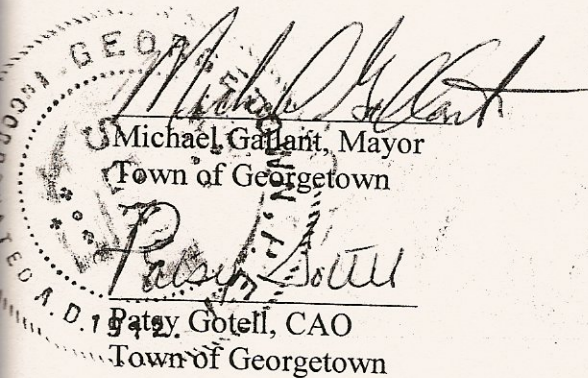 Michael Gallant
Michael Gallant, Mayor
Town of Georgetown
Patsy Gotell
Patsy Gotell, CAO
Town of Georgetown
GEOR
A.D. 1912.